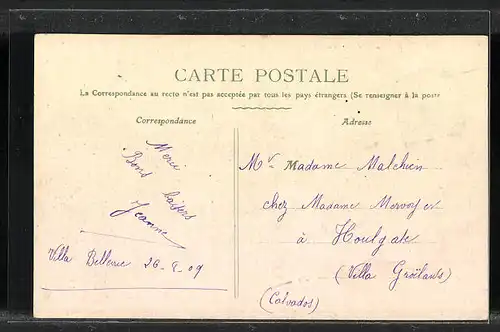 CARTE POSTALE
La Correspondance au recto n'est pas acceptée par tous les pays étrangers (Se renseigner à la poste
Correspondance
Adresse
Merci
Bons baisers
Jeanne
Villa Bellevue 26-8-09
Mr Madame
chez Madame
à Houlgate
(Villa
(Calvados)